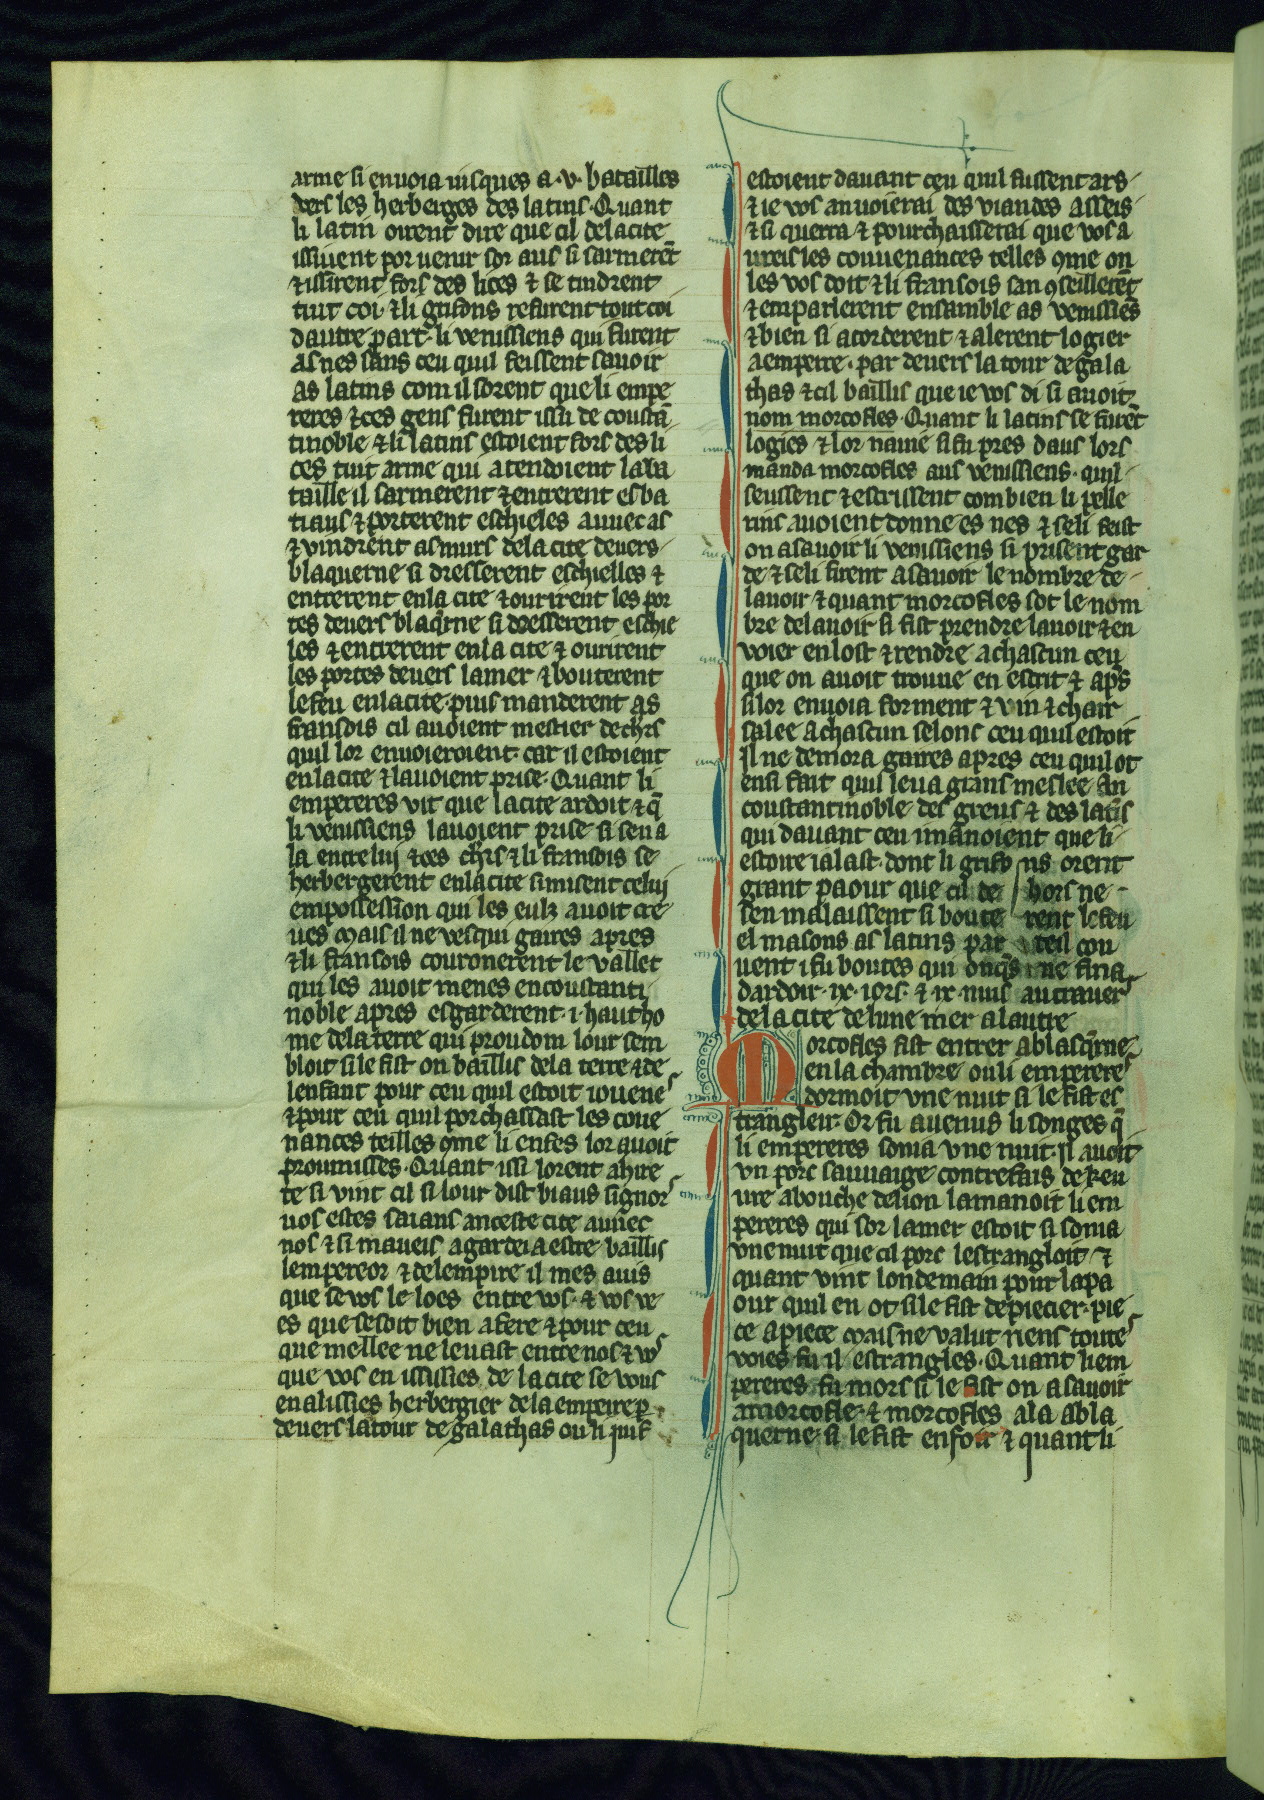 arme si enuoia iusques a .v. batailles
vers les herberges des latins. Quant
li latin oirent dire que cil de la cite
issiuent por uenir sor aus si sarmerēt
⁊ issirent fors des lices ⁊ se tindrent
tuit coi ⁊ li grifons refurent tout coi
dautre part. li uenissiens qui furent
as nes sans ceu quil feussent sauoir
as latins com il sorent que li empe
reres ⁊ ces gens furent issu de coustā
tinoble ⁊ li latins estoient fors des li
ces tuit arme qui atendoient la ba
taille il sarmerent ⁊ entrerent es ba
tiaus ⁊ porterent eschieles auuec as
⁊ vindrent as murs de la cite deuers
blaquerne si dresserent eschielles ⁊
entrerent en la cite ⁊ ourirent les por
tes deuers blaqrne si dresserent eschie
les ⁊ entrerent en la cite ⁊ ourirent
les portes deuers la mer ⁊ bouterent
le feu en la cite. puis manderent as
fransois cil auoient mestier de chrs
quil lor enuoieroient. car il estoient
en la cite ⁊ lauoient prise. Quant li
empereres vit que la cite ardoit ⁊ q̄
li uenissiens lauoient prise si sen a
la entre lui ⁊ ces chrs ⁊ li fransois se
herbergerent en la cite si misent celui
em possession qui les eulz auoit cre
ues mais il ne vesqui gaires apres
⁊ li fransois couronerent le vallet
qui les auoit menes en coustanti
noble apres esgarderent .i. haut ho
me de la terre qui proudom lour sem
bloit si le fist on baillis de la terre ⁊ de
lenfant pour ceu quil estoit iouene
⁊ pour ceu quil porchassast les coue
nances teilles 9me li enfes lor auoit
proumisses. Quant issi lorent ahire
te si vint cil si lour dist biaus signor
uos estes saians an ceste cite auuec
nos ⁊ si maueis a gardeia estre baillis
lempereor ⁊ de lempire il mes auis
que se vos le loes entre vos. ⁊ vos ve
es que se soit bien a fere ⁊ pour ceu
que mellee ne leuast entre nos ⁊ vos
que vos en ississies de la cite se vous
en alissies herbergier de la empeire p
deuers la tour de galathas ou li juif
estoient dauant ceu quil fussent ars
⁊ ie vos anuoierai des viandes asseis
⁊ si querra ⁊ pourchaisserai que vos a
ureis les couuenances telles 9me on
les vos doit ⁊ li fransois san 9seillerēt
⁊ em parlerent ensamble as venissiēs
⁊ bien si acorderent ⁊ alerent logier
a emperre. par deuers la tour de gala
thas ⁊ cil baillis que ie vos di si auoit
nom morcofles. Quant li latins se furēt
logies ⁊ lor nauie si fu pres daus lors
manda morcofles aus venissiens. quil
seussent ⁊ escrissent combien li pelle
rins auoient donne es nes ⁊ se li feist
on a sauoir li venissiens si prisent gar
de ⁊ se li firent a sauoir le nombre de
lauoir ⁊ quant morcofles sot le nom
bre de lauoir si fist prendre lauoir ⁊ en
voier en lost ⁊ rendre a chascun ceu
que on auoit trouue en escrit ⁊ aps
si lor enuoia forment ⁊ vin ⁊ chair
salee a chascun selonc ceu quil estoit
Il ne demora gaires apres ceu quil ot
ensi fait quil leua grans meslee an
coustantinoble des greus ⁊ des latis
qui dauant ceu i manoient que li
estoire i alast. dont li grifons orent
grant paour que cil de hors ne
sen malaissent si boute rent le feu
el masons as latins par teil cou
uent i fu boutes qui onqs ne fina
dardoir .ix. iors. ⁊ ix nuis au trauer
de la cite de lune mer a lautre
Morcofles fist entrer a blasqrne
en la chambre ou li emperere
dormoit vne nuit si le fist es
trangleir. Or fu auenus li songes q̄
li empereres soma vne nuit. Il auoit
vn porc sauuaige contrefais de keu
ure a bouche de lion la manoit li em
pereres qui sor la mer estoit si soma
vne nuit que cil porc lestrangloit ⁊
quant vint londemain pour la pa
our quil en ot si le fist depiecier. pie
ce a piece mais ne valut riens toute
voies fu il estrangles. Quant li em
pereres fu mors si le fist on a sauoir
a morcofle. ⁊ morcofles ala a bla
querne si le fist enfoir ⁊ quant li